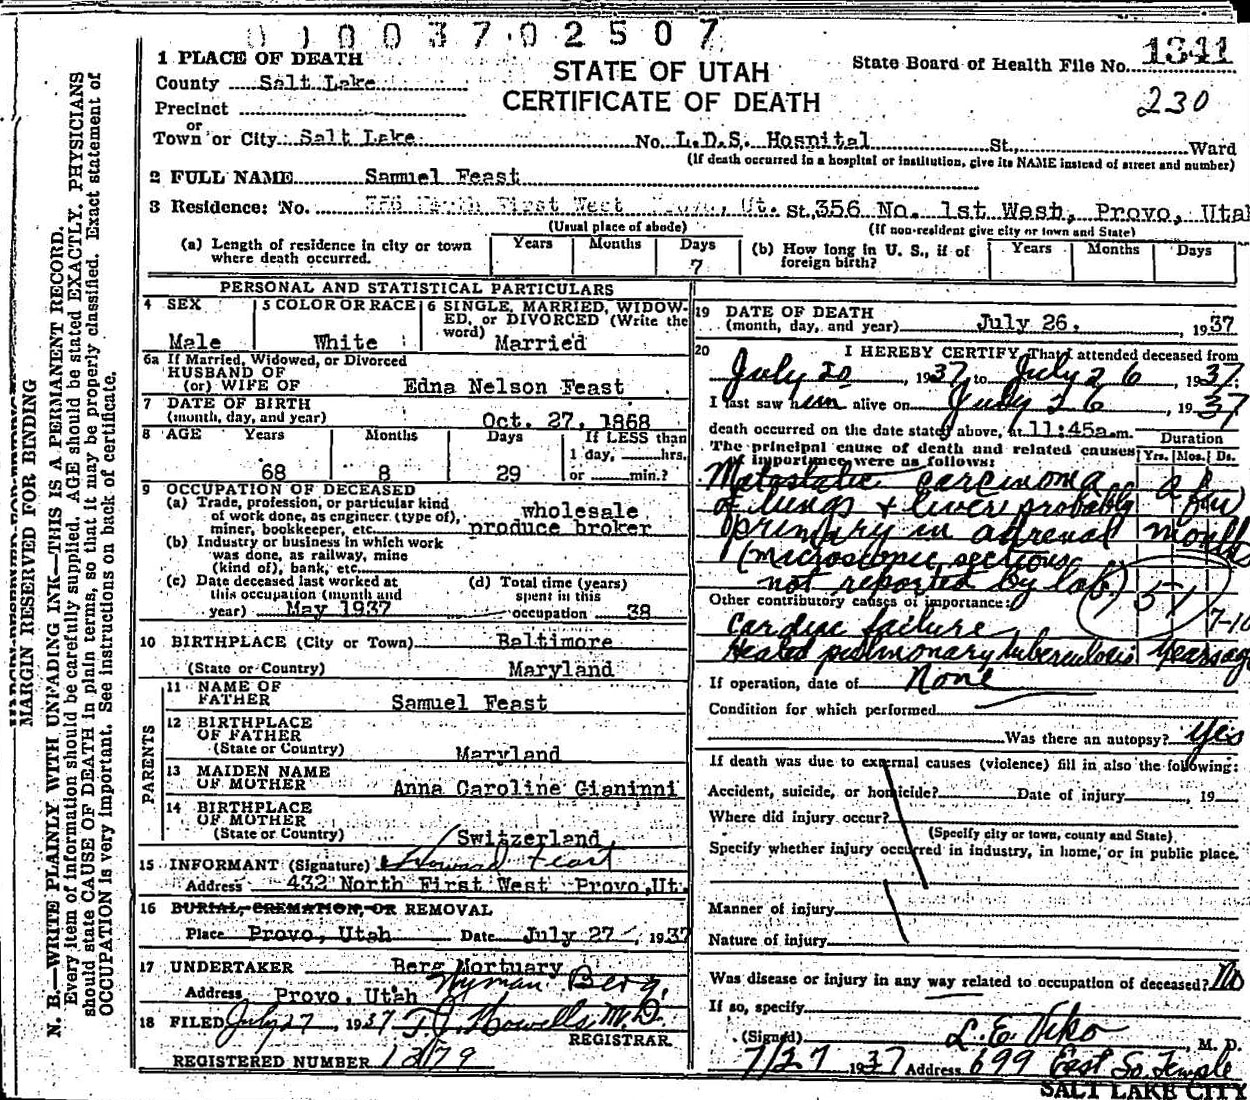 0100370 2507
1 PLACE OF DEATH
County Salt Lake
Precinct
or
Town or City Salt Lake No. L.D.S. Hospital St., Ward
(If death occurred in a hospital or institution, give its NAME instead of street and number)
STATE OF UTAH
CERTIFICATE OF DEATH
State Board of Health File No. 1341
230
2 FULL NAME Samuel Feast
3 Residence: No. First West Provo, Ut. St. 356 No. 1st West, Provo, Utah
(Usual place of abode) (If non-resident give city or town and State)
(a) Length of residence in city or town where death occurred. Years Months Days 7
(b) How long in U. S., if of foreign birth? Years Months Days
PERSONAL AND STATISTICAL PARTICULARS
4 SEX Male
5 COLOR OR RACE White
6 SINGLE, MARRIED, WIDOWED, or DIVORCED (Write the word) Married
6a If Married, Widowed, or Divorced
HUSBAND OF
(or) WIFE OF Edna Nelson Feast
7 DATE OF BIRTH
(month, day, and year) Oct. 27, 1868
8 AGE Years Months Days If LESS than
1 day, hrs.
68 8 29 or min.?
9 OCCUPATION OF DECEASED
(a) Trade, profession, or particular kind of work done, as engineer (type of), miner, bookkeeper, etc. wholesale produce broker
(b) Industry or business in which work was done, as railway, mine (kind of), bank, etc.
(c) Date deceased last worked at this occupation (month and year) May 1937
(d) Total time (years) spent in this occupation 38
10 BIRTHPLACE (City or Town) Baltimore
(State or Country) Maryland
PARENTS
11 NAME OF FATHER Samuel Feast
12 BIRTHPLACE OF FATHER
(State or Country) Maryland
13 MAIDEN NAME OF MOTHER Anna Caroline Gianinni
14 BIRTHPLACE OF MOTHER
(State or Country) Switzerland
15 INFORMANT (Signature) Howard Feast
Address 432 North First West Provo, Ut.
16 BURIAL, CREMATION, OR REMOVAL
Place Provo, Utah Date July 27, 1937
17 UNDERTAKER Berg Mortuary
Address Provo, Utah Hyman Berg.
18 FILED July 27 1937 T. J. Howells M.D.
REGISTRAR
REGISTERED NUMBER 1279
19 DATE OF DEATH
(month, day, and year) July 26, 1937
20 I HEREBY CERTIFY, That I attended deceased from
July 20, 1937 to July 26, 1937:
I last saw him alive on July 26, 1937
death occurred on the date stated above, at 11:45a.m.
The principal cause of death and related causes of importance were as follows: Duration
Yrs. Mos. Ds.
Metastatic carcinoma a few
of lungs & liver probably
primary in adrenal months
(microscopic sections
not reported by lab.) 51
Other contributory causes of importance:
Cardiac failure 7-10
Healed pulmonary tuberculosis years ago
If operation, date of None
Condition for which performed
Was there an autopsy? Yes
If death was due to external causes (violence) fill in also the following:
Accident, suicide, or homicide? Date of injury , 19
Where did injury occur?
(Specify city or town, county and State)
Specify whether injury occurred in industry, in home, or in public place.
Manner of injury
Nature of injury
Was disease or injury in any way related to occupation of deceased? No
If so, specify
(Signed) L. E. Viko M. D.
7/27 1937 Address 699 East So. Temple
SALT LAKE CITY
MARGIN RESERVED FOR BINDING
N. B.—WRITE PLAINLY WITH UNFADING INK—THIS IS A PERMANENT RECORD.
Every item of information should be carefully supplied. AGE should be stated EXACTLY. PHYSICIANS
should state CAUSE OF DEATH in plain terms, so that it may be properly classified. Exact statement of
OCCUPATION is very important. See instructions on back of certificate.